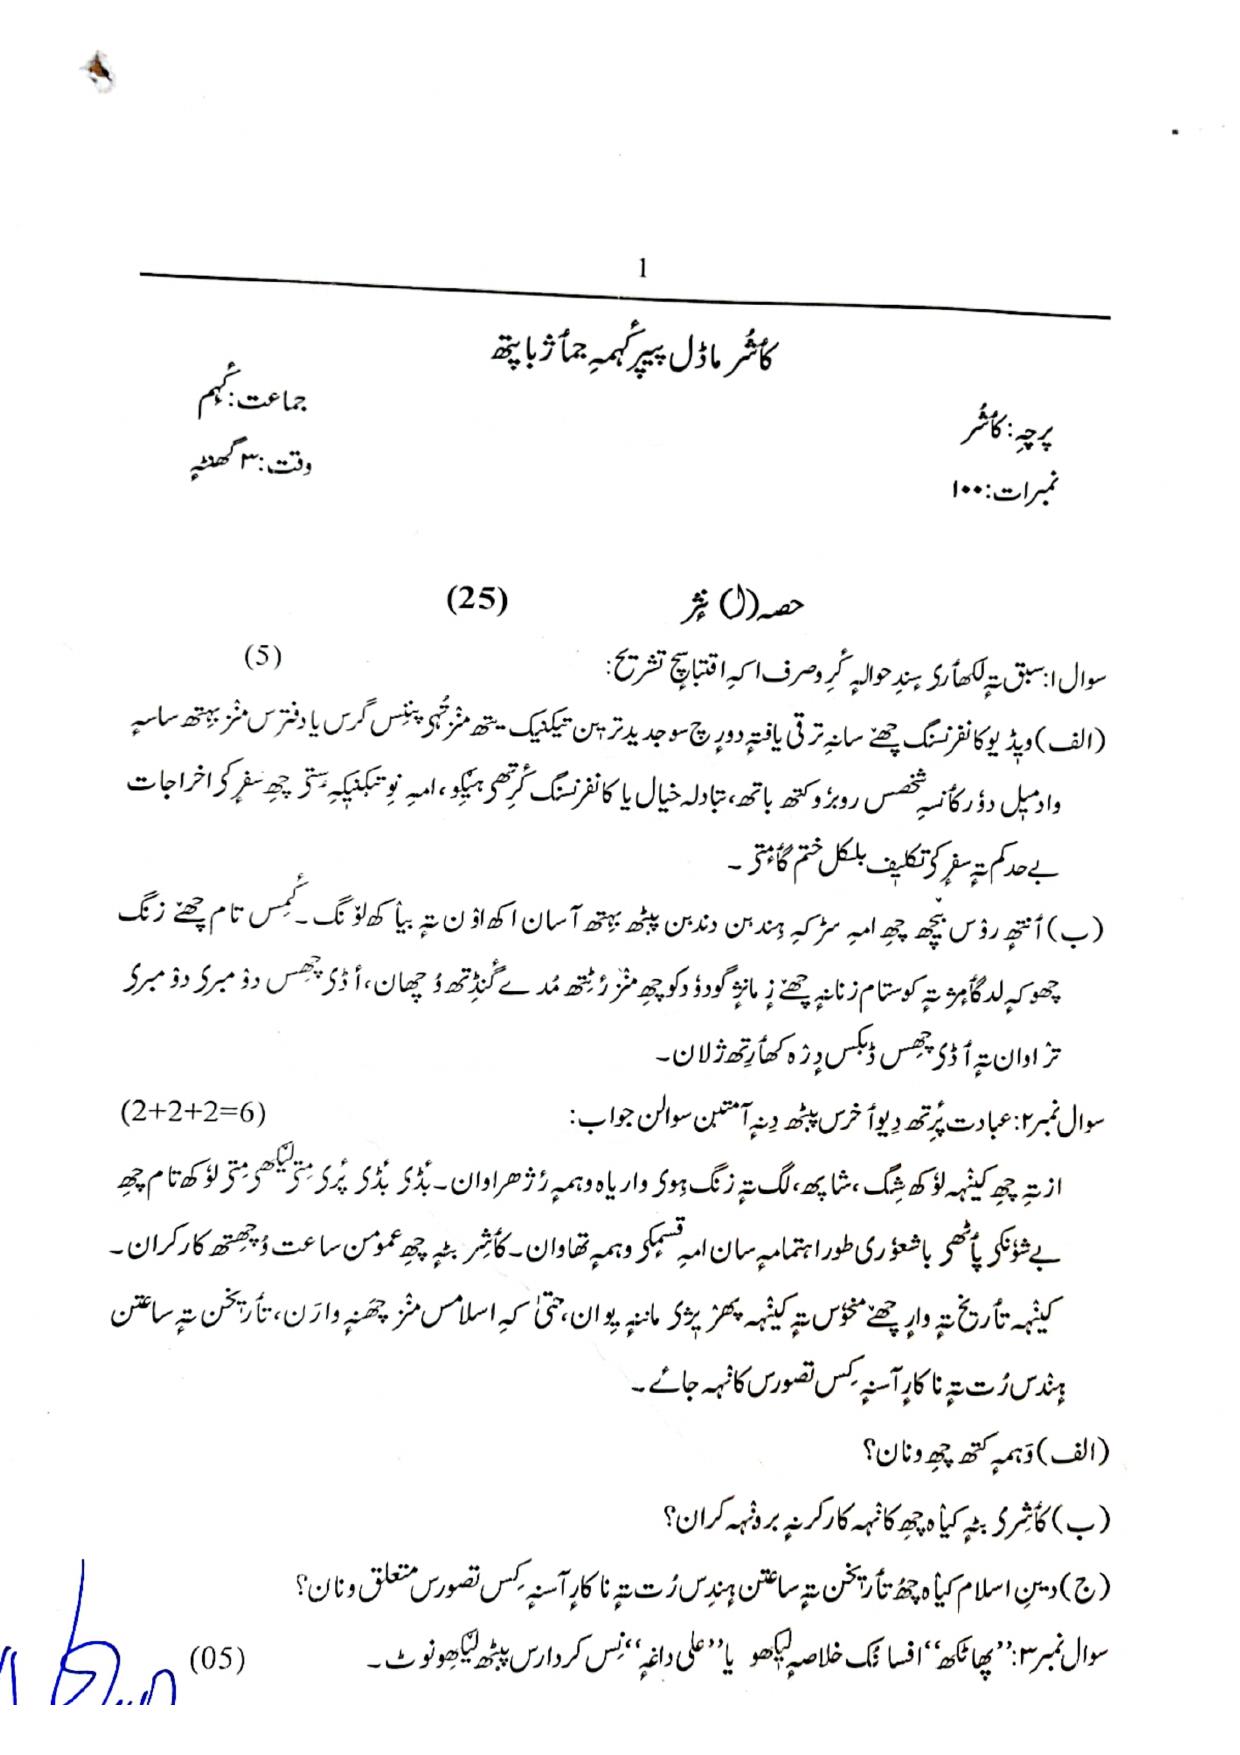 1
کٲشُر ماڈل پیپر کُہمہِ جمٲژ باپتھ
پرچہِ: کٲشُر
جماعت: کُہم
نمبرات: ۱۰۰
وقت: ۳ گھنٹہٕ
حصہ (ل) نثٕر (25)
سوال ۱: سبق تہٕ لکھٲرۍ ہٕندِ حوالہٕ کٔرِو صرف اکہِ اقتباسٕچ تشریح: (5)
(الف) ویڈیو کانفرنسنگ چھےٚ سانہِ ترقی یافتہٕ دورٕچ سۄ جدید ترین تیکنیک یتھ منٛز تُہۍ پننِس گرس یا دفترس منٛز بِہتھ ساسہٕ
واد میٖل دوٗر کٲنسہِ شخصس روبروٗ کتھ باتھ، تبادلہ خیال یا کانفرنسنگ کٔرِتھ ہیٚکِو، امہِ نوِ تیکنیکہِ سٟتۍ چھِ سفرٕکۍ اخراجات
بے حد کم تہٕ سفرٕکۍ تکلیٖف بلکل ختم گٲمٕتۍ ۔
(ب) اَنتھ روٚس بٔچھ چھِ امہِ سڑکہِ ہٕندین دندین پیٚٹھ بِہتھ آسان اکھ اوٚن تہٕ بیاکھ لوٚنگ ۔ کٔمِس تام چھےٚ زنگ
چھوکہٕ لد گٲمٕژ تہٕ کوستام زنانہٕ چھےٚ زٕ مانٛژ گودوٗد کوچھِ منٛز رٔٹِتھ مُدے گٔنٛڈِتھ وُچھان، أڈۍ چھِس دۄمبرۍ دۄمبرۍ
ترٛاوان تہٕ أڈۍ چھِس ڈیٚکس دٕژہ کھٲرِتھ ژلان ۔
سوال نمبر ۲: عبادت پٔرِتھ دِیو أخرس پیٚٹھ دِنہٕ آمتین سوالن جواب: (2+2+2=6)
از تہِ چھِ کینٛہہ لوٗکھ شِنگ، شاپھ، لگ تہٕ زنگ ہِوۍ واریاہ وہمہٕ رٔژھراوان ۔ بٔڈۍ بٔڈۍ پٔرۍ مٕتۍ لیٖکھۍ مٕتۍ لوٗکھ تام چھِ
بے شوٗنکۍ پٲٹھۍ با شعوٗری طور اہتمامہٕ سان امہِ قسمٕکۍ وہمہٕ تھاوان ۔ کٲشِر بٹہٕ چھِ عمومن ساعت وُچھِتھ کار کران ۔
کینٛہہ تأریخ تہٕ وارٕ چھےٚ منحوٗس تہٕ کینٛہہ پھرٛیژۍ ماننہٕ یِوان، حتیٰ کہِ اسلامس منٛز چھَنہٕ وارَن، تأریخن تہٕ ساعتن
ہٕنٛدِس رُت تہٕ ناکارٕ آسنہٕ کِس تصورس کانٛہہ جاے ۔
(الف) وَہمہٕ کتھ چھِ ونان؟
(ب) کٲشِرۍ بٹہٕ کیاہ چھِ کانٛہہ کار کرنہٕ برونٛہہ کران؟
(ج) دینِ اسلام کیاہ چھُ تأریخن تہٕ ساعتن ہٕنٛدِس رُت تہٕ ناکارٕ آسنہٕ کِس تصورس متعلق ونان؟
سوال نمبر ۳: ’’پھاٹکھ‘‘ افسانٕک خلاصہٕ لیٖکھو یا ’’علی داغہٕ‘‘ نِس کردارس پیٚٹھ لیٖکھو نوٹ ۔ (05)